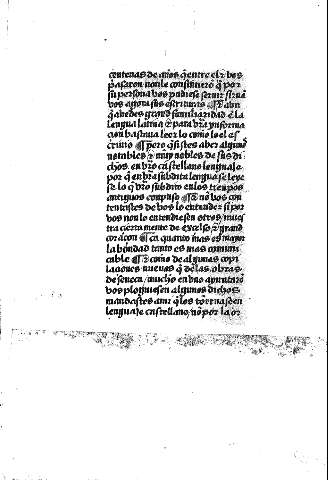 centenas de años q̃ entre el ⁊ vos
pasaron non le consintierõ q̃ por
su persona vos pudiese seruir sirua
vos agora sus escrituras ¶ ⁊ aun
q̃ auedes grand familiaridad ẽ la
lengua latina ⁊ para vr̃a ynforma
cion bastaua leer lo como lo el es
criuio ¶ pero q̃sistes aber algunos
notables ⁊ muy nobles de sus di
chos en vr̃o castellano lenguaje
por q̃ en vr̃a subdita lengua se leye
se lo q̃ vr̃o subdito en los tienpos
antiguos conpuso ¶ ⁊ nõ vos con
tentastes de vos lo entender si por
vos non lo entendiesen otros mues
tra ciertamente de excelso ⁊ grand
coraçon ¶ ca quanto mas es mayor
la bondad tanto es mas comuni
cable ¶ ⁊ como de algunas copi
laciones nuevas q̃ de las obras
de seneca mucho en vno ayuntarõ
vos ploguiesen algunos dichos
mandastes a mi q̃ los tornase en
lenguaje castellano nõ por la or